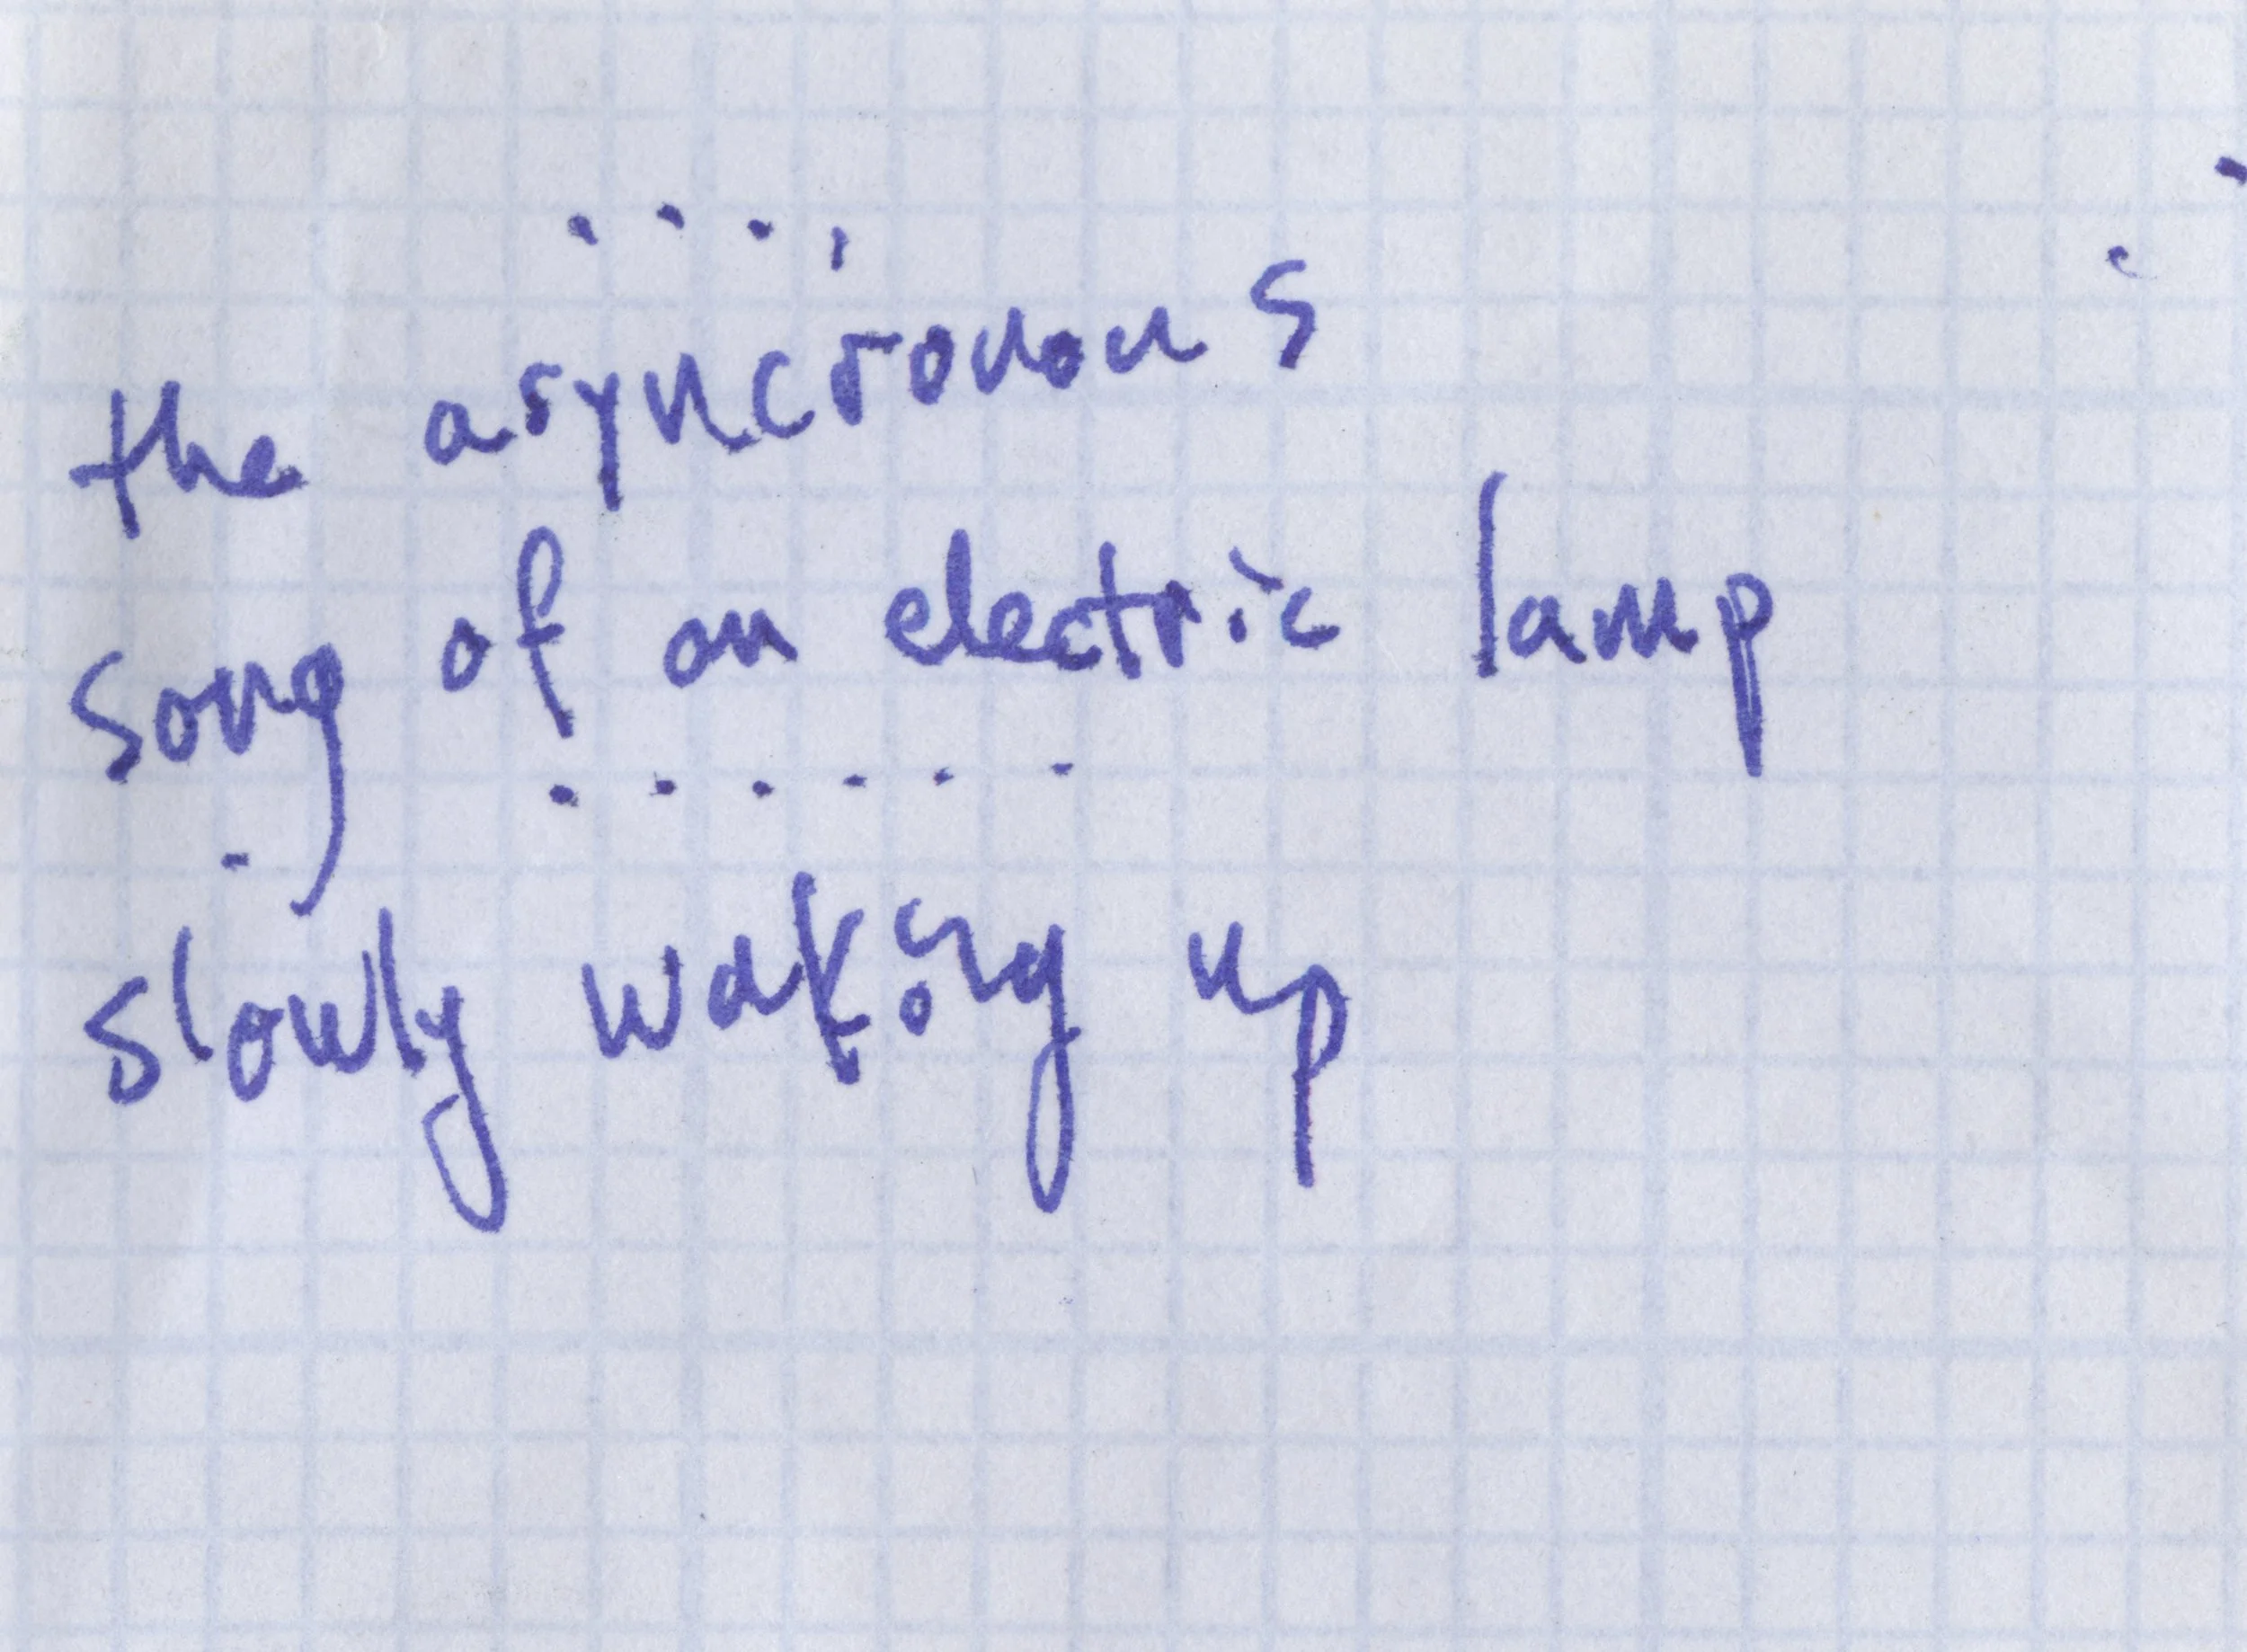 the asyncronous
song of an electric lamp
slowly waking up